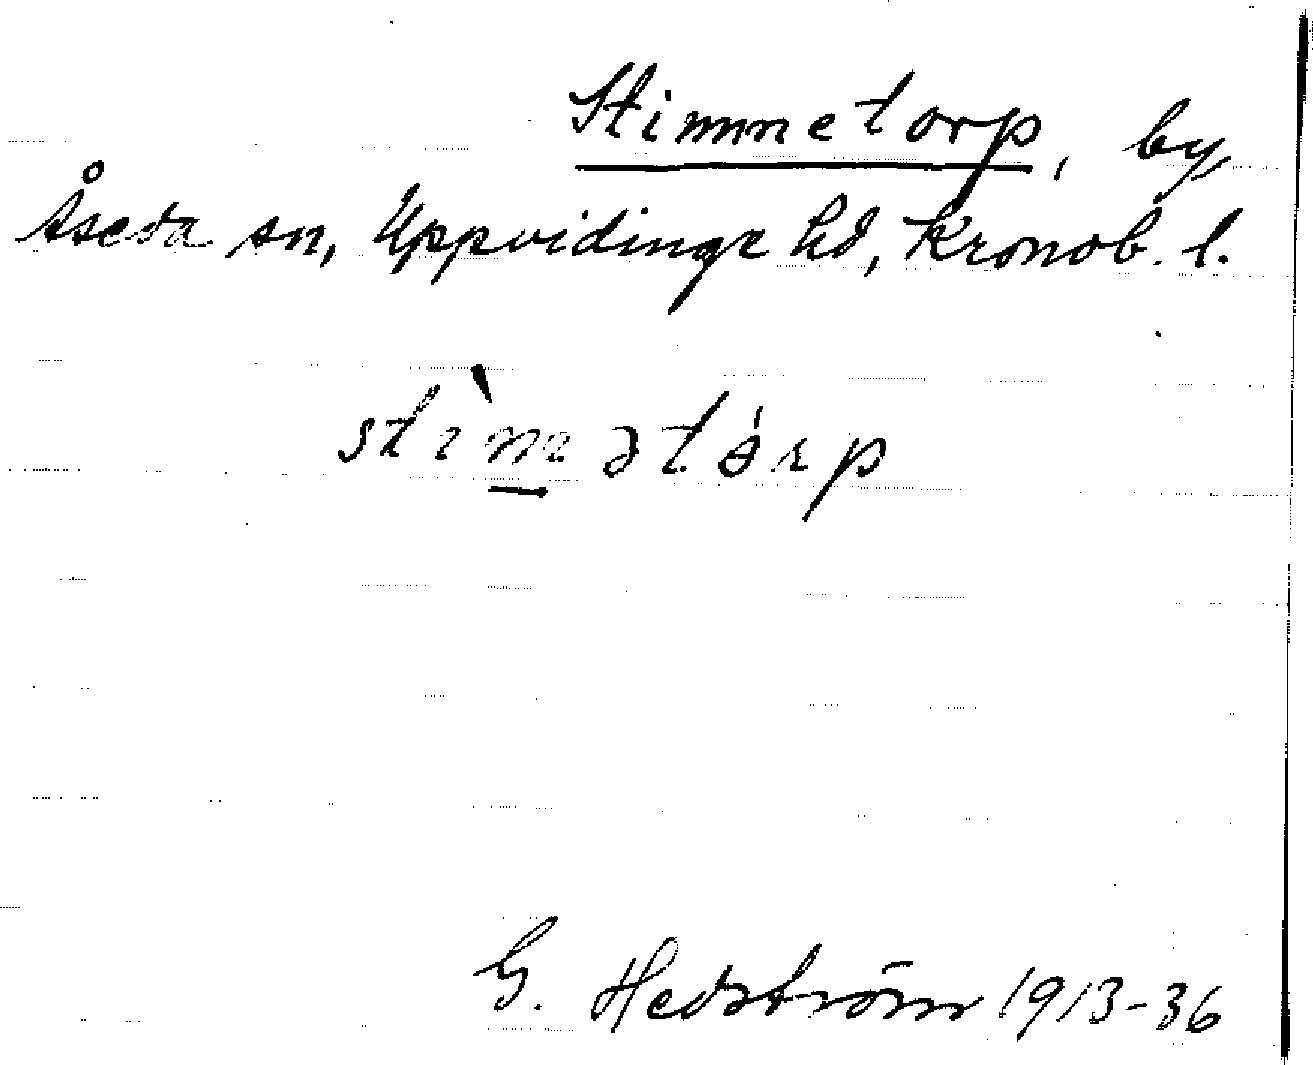 Stimmetorp, by,
Åseda sn, Uppvidinge hd, Kronob. l.
stìmətȯrp
G. Hedström 1913-36